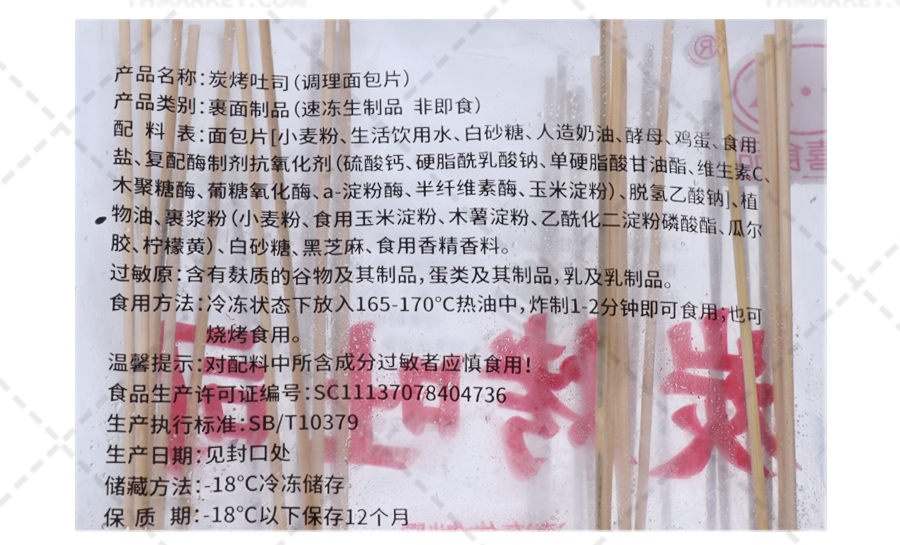 产品名称:炭烤吐司(调理面包片)
产品类别:裹面制品(速冻生制品 非即食)
配 料 表:面包片[小麦粉、生活饮用水、白砂糖、人造奶油、酵母、鸡蛋、食用
盐、复配酶制剂抗氧化剂(硫酸钙、硬脂酰乳酸钠、单硬脂酸甘油酯、维生素C、
木聚糖酶、葡糖氧化酶、a-淀粉酶、半纤维素酶、玉米淀粉)、脱氢乙酸钠]、植
物油、裹浆粉(小麦粉、食用玉米淀粉、木薯淀粉、乙酰化二淀粉磷酸酯、瓜尔
胶、柠檬黄)、白砂糖、黑芝麻、食用香精香料。
过敏原:含有麸质的谷物及其制品,蛋类及其制品,乳及乳制品。
食用方法:冷冻状态下放入165-170℃热油中,炸制1-2分钟即可食用;也可
烧烤食用。
温馨提示:对配料中所含成分过敏者应慎食用!
食品生产许可证编号:SC11137078404736
生产执行标准:SB/T10379
生产日期:见封口处
储藏方法:-18℃冷冻储存
保 质 期:-18℃以下保存12个月
炭烤吐司